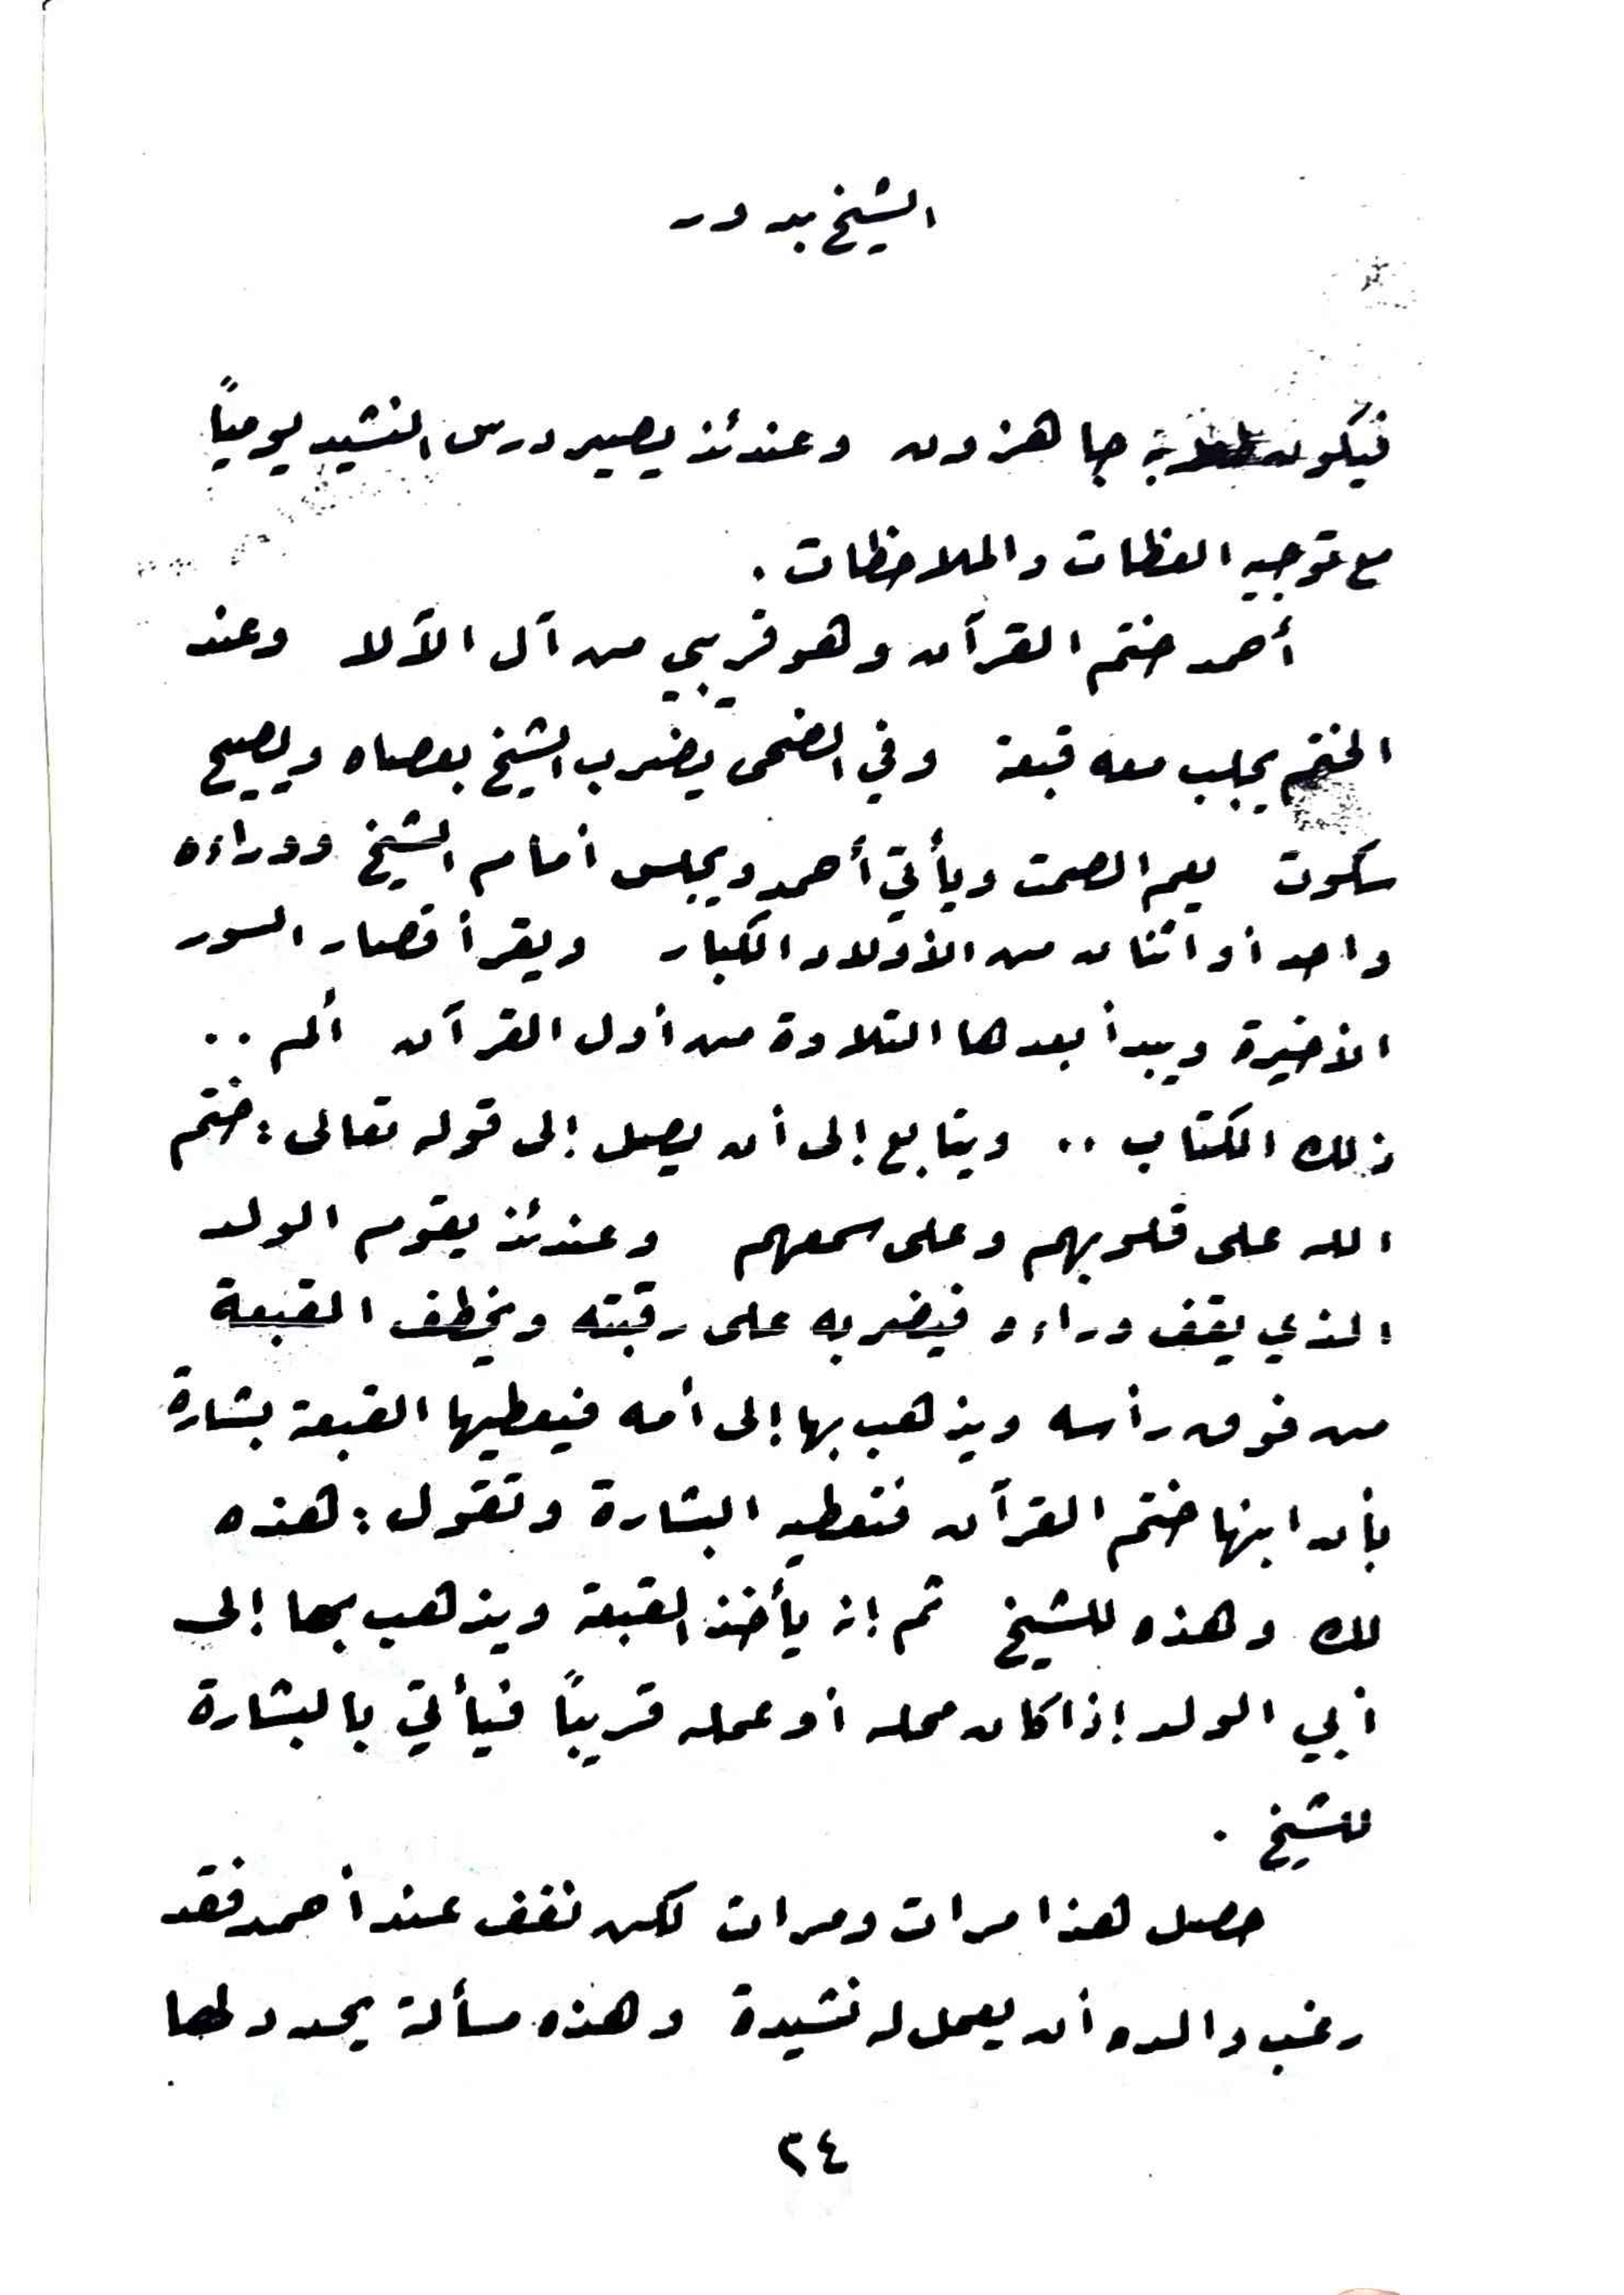 الشيخ بدور
فيكون جاهزون وعندئذ يصير درس النشيد يومياً
مع توجيه العظات والملاحظات .
أحمد ختم القرآن وهو قريبي من آل الآلا وعند
الختم يجلب معه قبعة وفي الضحى يضرب الشيخ بعصاه ويصيح
سكوت يعم الصمت ويأتي أحمد ويجلس أمام الشيخ ووراءه
واحد أو اثنان من الأولاد الكبار ويقرأ قصار السور
الأخيرة ويبدأ بعدها التلاوة من أول القرآن ألم ..
ذلك الكتاب .. ويتابع إلى أن يصل إلى قوله تعالى : ختم
الله على قلوبهم وعلى سمعهم وعندئذ يقوم الولد
الذي يقف وراءه فيضربه على رقبته ويخطف القبعة
من فوق رأسه ويذهب بها إلى أمه فيعطيها القبعة بشارة
بأن ابنها ختم القرآن فتعطيه البشارة وتقول : هذه
لك وهذه للشيخ ثم إن يأخذ القبعة ويذهب بها إلى
أبي الولد إذا كان محله أو عمله قريباً فيأتي بالبشارة
للشيخ .
حصل هذا مرات ومرات لكن نقف عند أحمد فقد
رغب والده أن يعمل له نشيدة وهذه مسألة يحدد لها
٢٤